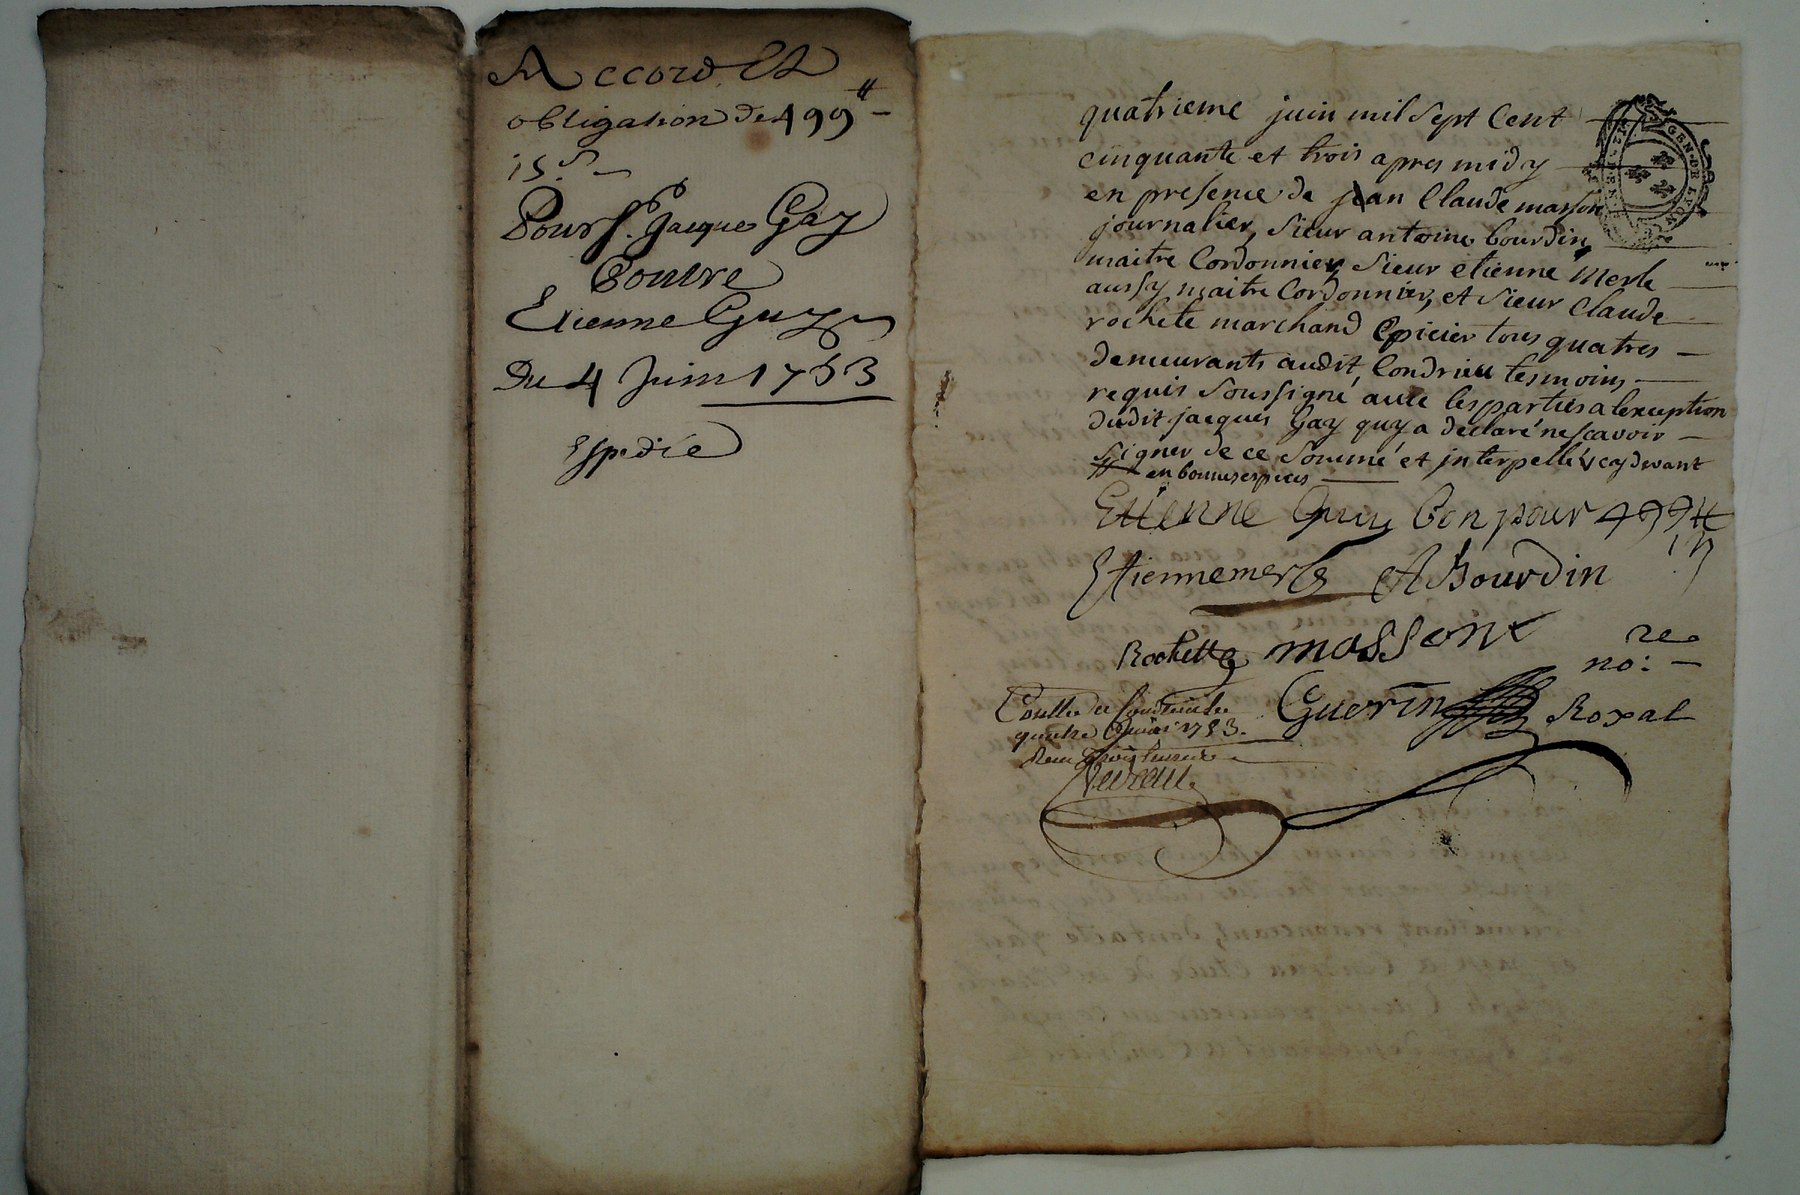 Accord Et
obligation de 499 ₶
15 s.
Pour Sr. Jacques Gay
Contre
Etienne Guy
Du 4 Juin 1753
Expediée
quatrieme juin mil sept Cent
cinquante et trois apres midy
en presence de jean Claude masson
journalier, Sieur antoine bourdin
maitre Cordonnier, Sieur etienne Merle
aussy maitre Cordonnier, et Sieur Claude
rochete marchand Epicier tous quatres
demeurants audit Condrieu tesmoins
requis soussigné avec les parties a lexception
dudit jacques Gay quy a declaré ne scavoir
signer de ce sommé et interpellé cy dvant
en bonnes especes
GEN. DE LYON
Etienne Guy bon pour 499 ₶
15
Etienne merle A Bourdin
Rochette masson
no: re
Guerin Royal
Con.lle a Condrieu le
quatre Juin 1753.
Reçu